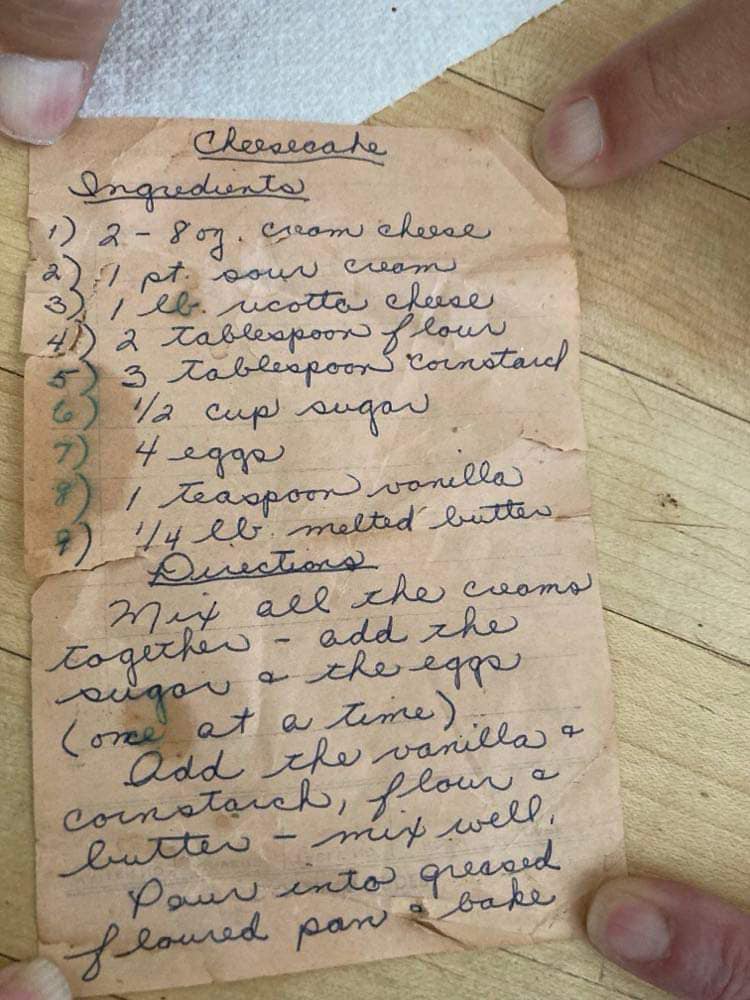 Cheesecake
Ingredients
1) 2 - 8 oz. cream cheese
2) 1 pt. sour cream
3) 1 lb. ricotta cheese
4) 2 tablespoon flour
5) 3 tablespoon cornstarch
6) 1/2 cup sugar
7) 4 eggs
8) 1 teaspoon vanilla
9) 1/4 lb. melted butter
Directions
Mix all the creams
together - add the
sugar & the eggs
(one at a time)
Add the vanilla &
cornstarch, flour &
butter - mix well.
Pour into greased
floured pan & bake